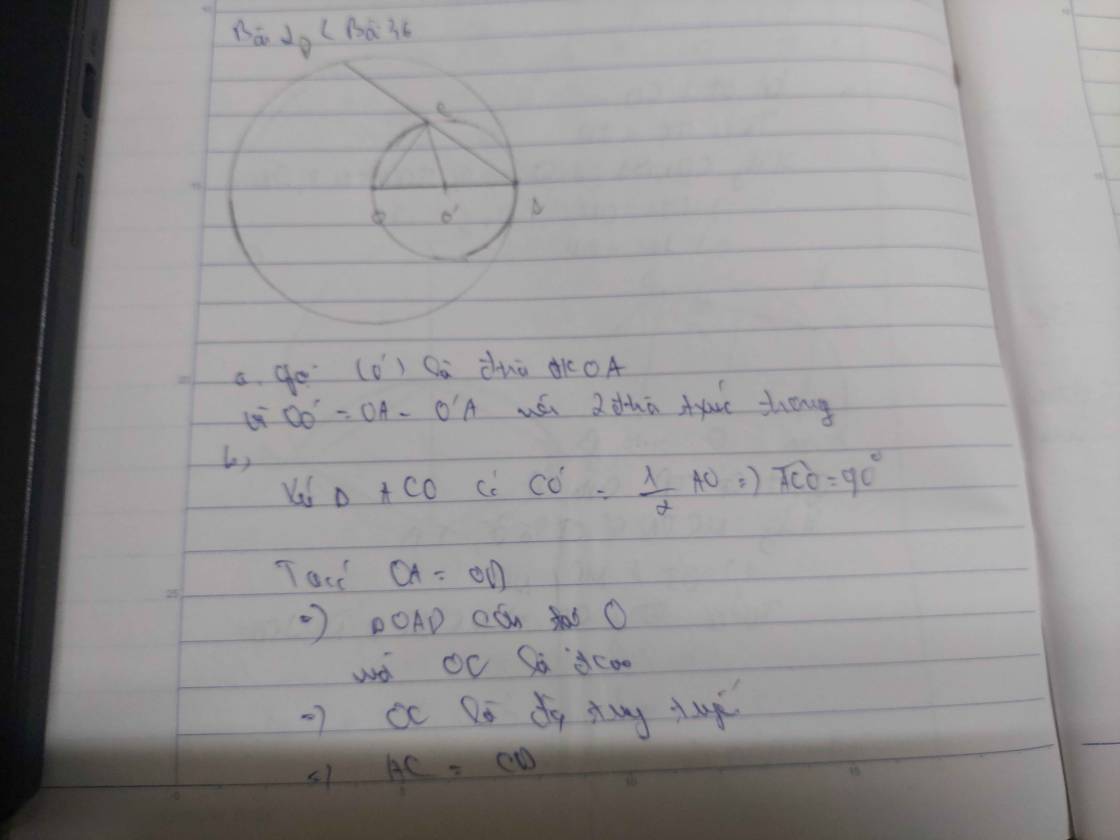 Bài 2, ( Bài 36
D
C
O O' A
a. Gọi (O') là đtrò đk OA
Vì OO' = OA - O'A nên 2 đtrò txúc trong
b,
Xét Δ ACO có CO' = 1/2 AO => ACO = 90°
Ta có OA = OD
=> ΔOAD cân tại O
mà OC là đcao
=> OC là đg tuyến
=> AC = CD